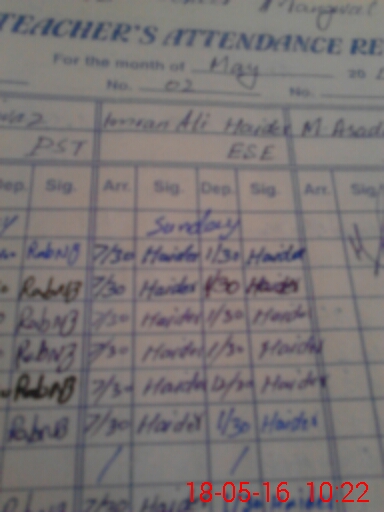 TEACHER'S ATTENDANCE RE
For the month of May 20
No. 02 No.
Imran Ali Haider M Asad
PST ESE
Dep. Sig. Arr. Sig. Dep. Sig. Arr. Sig
Sunday
RabNB 7/30 Haider 1/30 Haider
RabNB 7/30 Haider 1/30 Haider
RabNB 7/30 Haider 1/30 Haider
RabNB 7/30 Haider 1/30 Haider
RabNB 7/30 Haider 12/30 Haider
RabNB 7/30 Haider 1/30 Haider
RabNB 7/30 Haider
18-05-16 10:22